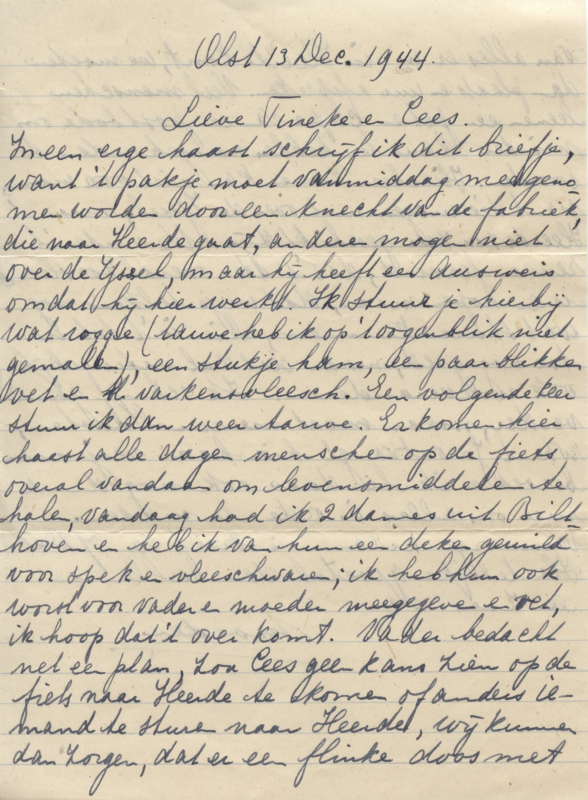 Olst 13 Dec. 1944.
Lieve Tineke en Cees.
In een erge haast schrijf ik dit briefje,
want 't pakje moet vanmiddag meegeno-
men worden door een knecht van de fabriek,
die naar Heerde gaat, anderen mogen niet
over de IJssel, maar hij heeft een Ausweis
omdat hij hier werkt. Ik stuur je hierbij
wat rogge (tarwe heb ik op 't oogenblik niet
gemalen), een stukje ham, een paar blikken
vet en varkensvleesch. Een volgende keer
stuur ik dan weer tarwe. Er komen hier
haast alle dagen menschen op de fiets
overal vandaan om levensmiddelen te
halen, vandaag had ik 2 dames uit Bilt-
hoven en heb ik van hun een deken geruild
voor spek en vleeschwaren; ik heb hun ook
worst voor vader en moeder meegegeven en vet,
ik hoop dat 't over komt. Vader bedacht
net een plan, zou Cees geen kans zien op de
fiets naar Heerde te komen of anders ie-
mand te sturen naar Heerde, wij kunnen
dan zorgen, dat er een flinke doos met